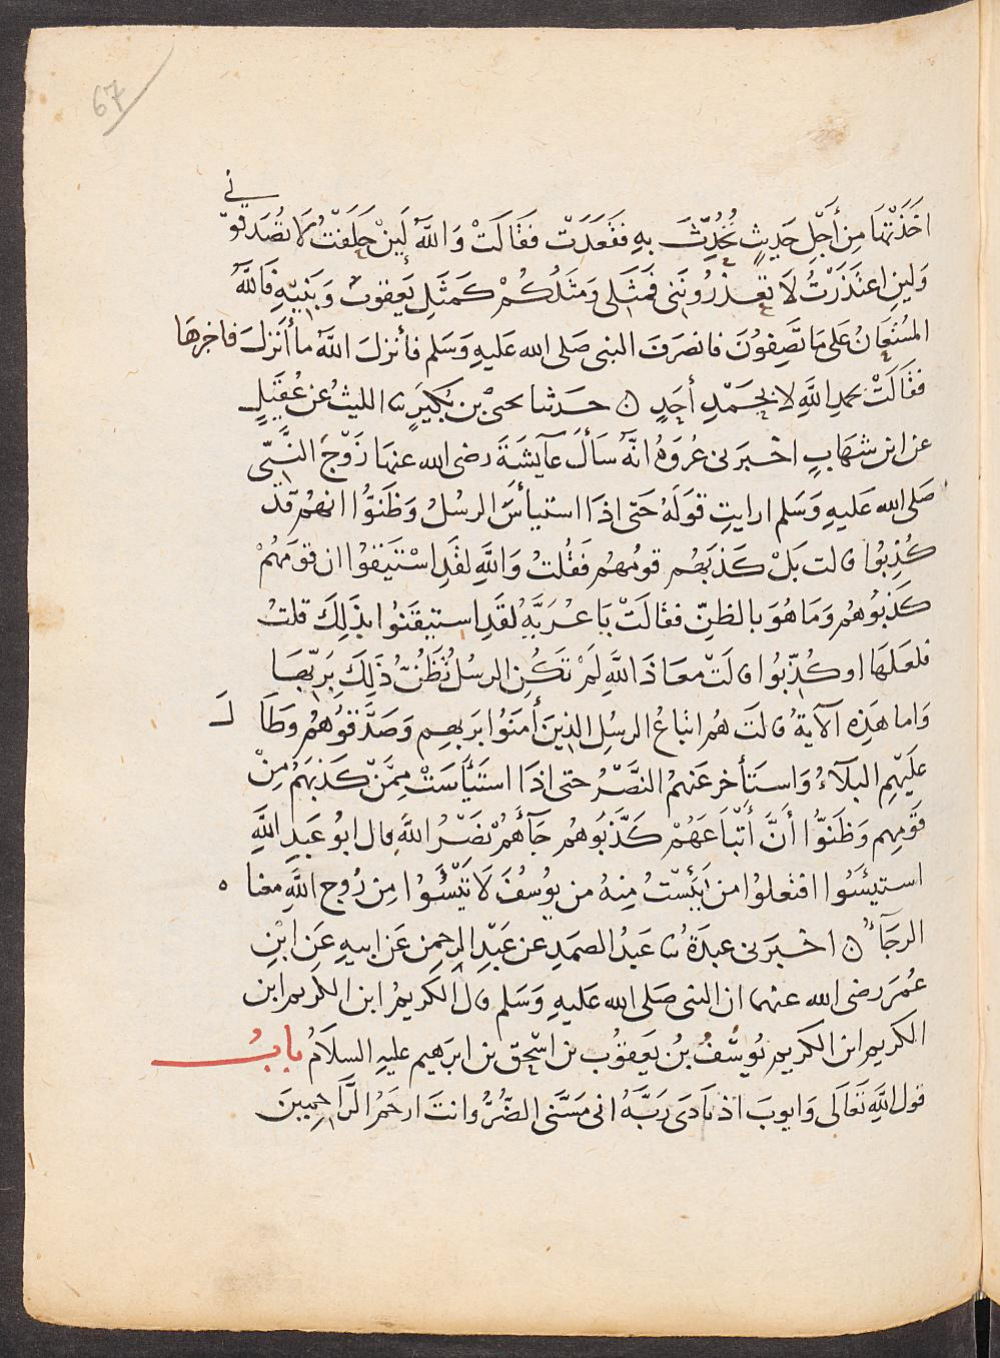 67
أَخَذَتْهَا مِن أَجْلِ حَدِيثٍ تُحُدِّثَ بِهِ فَقَعَدَتْ فَقَالَتْ وَاللَّهُ لَئِنْ حَلَفْتُ لَا تُصَدِّقُونِي
وَلَئِنِ اعْتَذَرْتُ لَا تَعْذِرُونَنِي فَمَثَلِي وَمَثَلُكُمْ كَمَثَلِ يَعقوبَ وَبَنِيهِ فَاللَّهُ
المُسْتَعَانُ عَلَى مَا تَصِفُونَ فانصَرَفَ النبي صَلى الله عَليهِ وَسَلم فأنزلَ اللَّهُ ما أَنزلَ فاخبرهَا
فقَالَتْ بحمدِ اللَّهِ لا بِحَمْدِ أَحَدٍ ن حدثنا يحيىٰ بن بُكَيرٍ ثنا الليثُ عن عُقَيلٍ
عن ابن شهَابٍ اخبرني عُروَةُ انَّهُ سَأَلَ عَآيِشَةَ رضى الله عنهَا زَوْجَ النَّبِي
صَلى الله عَليهِ وَسَلم ارايتِ قولَهُ حَتى اذَا استيأسَ الرسُلُ وَظَنَوُّا انهُمْ قَدْ
كُذِبُوا قالت بَلْ كَذبَهُم قومُهُم فَقُلتُ وَاللَّهِ لقَدِ اسْتَيقَنُوا ان قَومَهُمْ
كَذبُوهُم وَمَا هُوَ بالظنِّ فقالَتْ يَا عُرَيَّةُ لقَدِ استيقَنُوا بذَلِكَ قلتُ
فلعَلهَا او كُذِّبُوا قالَتْ معَاذَ اللَّهِ لَمْ تَكُنِ الرسُلُ تَظُنُّ ذَلِكَ بِرَبِّهَا
وَاما هَذِه الآيةُ قالَتَ هُم اتباعُ الرسُلِ الذِينَ أَمَنُوا بِرَبهِم وَصَدَّقُوهُمُ وَطَالَ
عَلَيْهِمِ البَلآءُ وَاستَأخر عَنهُمُ النَّصْرُ حتى اذَا استَيْأَسَتْ مِمَّنْ كَذبَهُمُ مِنْ
قَومِهِم وَظنوُّا أَنَّ أَتْبَاعَهُمْ كَذَّبُوهُم جَآءَهُمْ نَصْرُ اللَّهِ قال ابُو عَبدِ اللَّهِ
استيئَسُوا افتعلوُا من يَئِسْتُ مِنهُ من يوسُفَ لَا تَيْئَسُوا مِن رُوحِ اللَّهِ معنا ه
الرجَآءُ ن اخبَرني عبدَةُ ثنا عَبدُ الصمَدِ عن عَبدِ الرحمنِ عَن ابيهِ عَنِ ابْنِ
عُمَرَ رضى الله عنهما ان النبي صَلى الله عَليهِ وَسَلم قالَ الكَريمُ ابن الكَريم ابن
الكريم ابن الكَريم يُوسُفُ بنُ يعَقوُب بن اسْحٰقَ بن ابرَهيم عليهِ السلَامُ بابُ
قولِ اللَّهِ تعَالَى وَايوبَ اذ نادَى رَبَّهُ انى مَسَّنى الضُرُّ وانتَ ارحَمُ الرَّاحِمِينَ